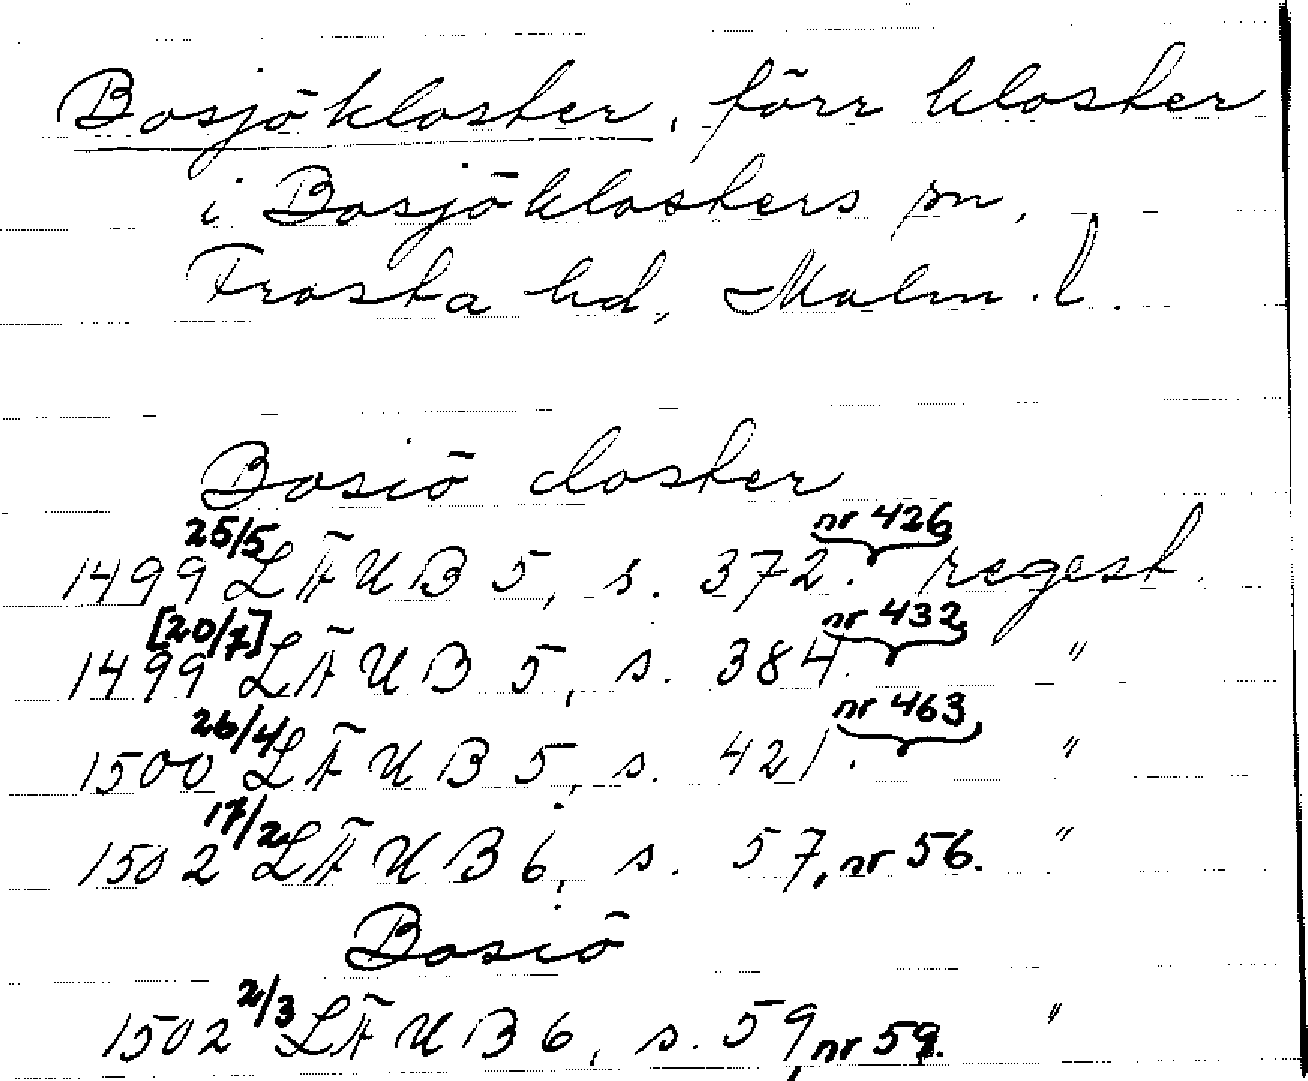 Bosjökloster, förr kloster
i Bosjöklosters sn,
Frosta hd, Malm. l.
Bosiö closter
1499 25/5 LÄUB 5, s. 372. nr 426 regest.
1499 [20/7] LÄUB 5, s. 384. nr 432 "
1500 26/4 LÄUB 5, s. 421. nr 463 "
1502 17/2 LÄUB 6, s. 57, nr 56. "
Bosiö
1502 2/3 LÄUB 6, s. 59, nr 59. "